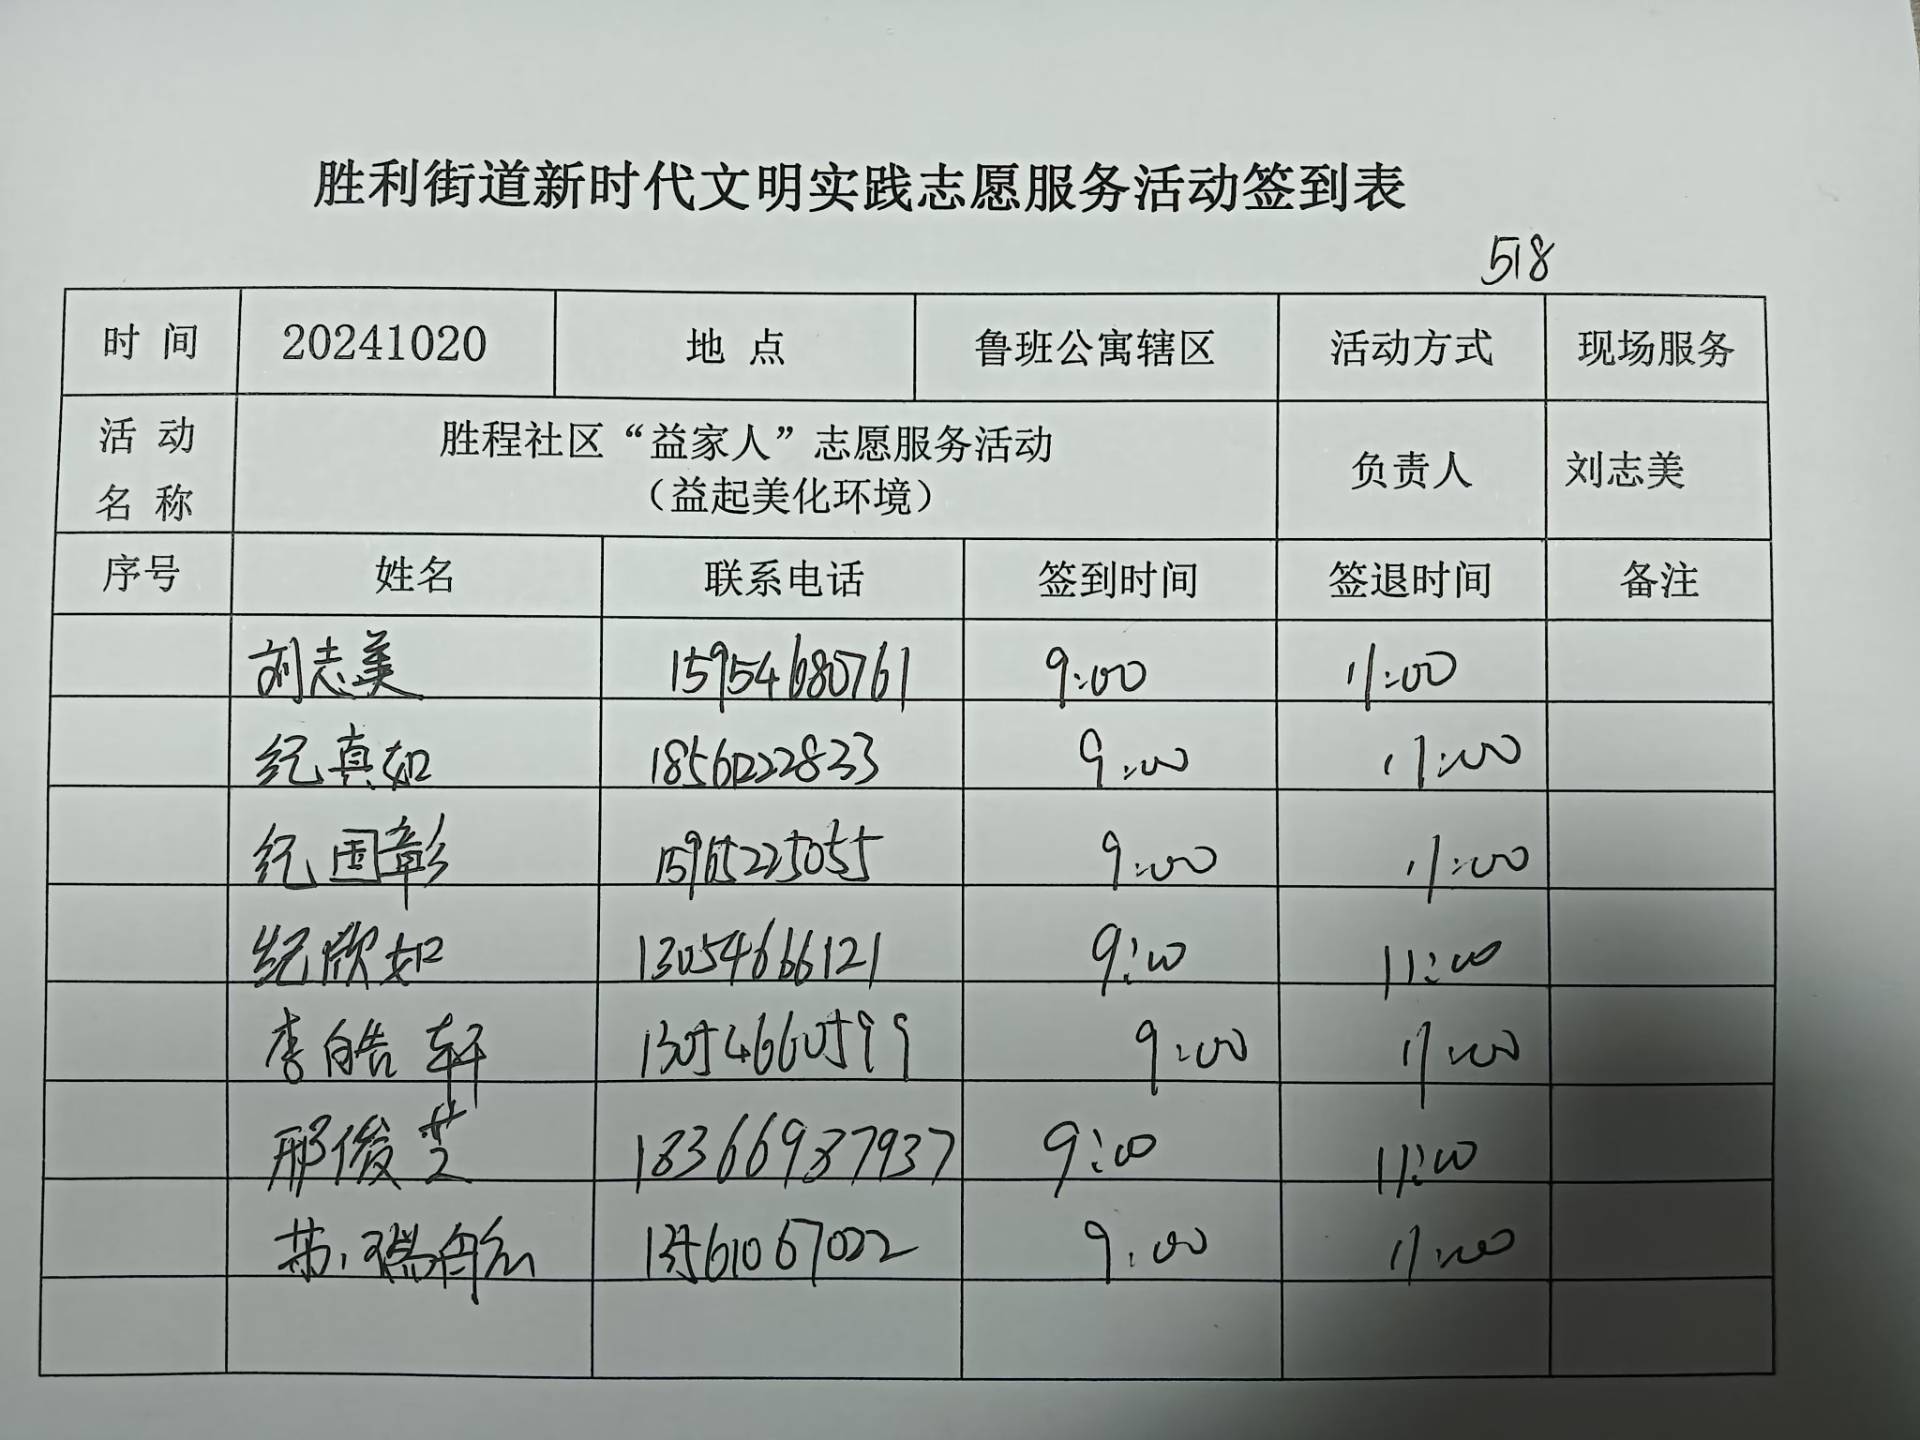 胜利街道新时代文明实践志愿服务活动签到表
518
时 间 20241020 地 点 鲁班公寓辖区 活动方式 现场服务
活 动 名 称 胜程社区“益家人”志愿服务活动
（益起美化环境） 负责人 刘志美
序号 姓名 联系电话 签到时间 签退时间 备注
刘志美 15954680761 9:00 11:00
纪真如 9:00 11:00
纪国彰 15965225055 9:00 11:00
纪欣如 13054666121 9:00 11:00
李皓轩 13054660599 9:00 11:00
邢俊芝 18366987937 9:00 11:00
13561067022 9:00 11:00